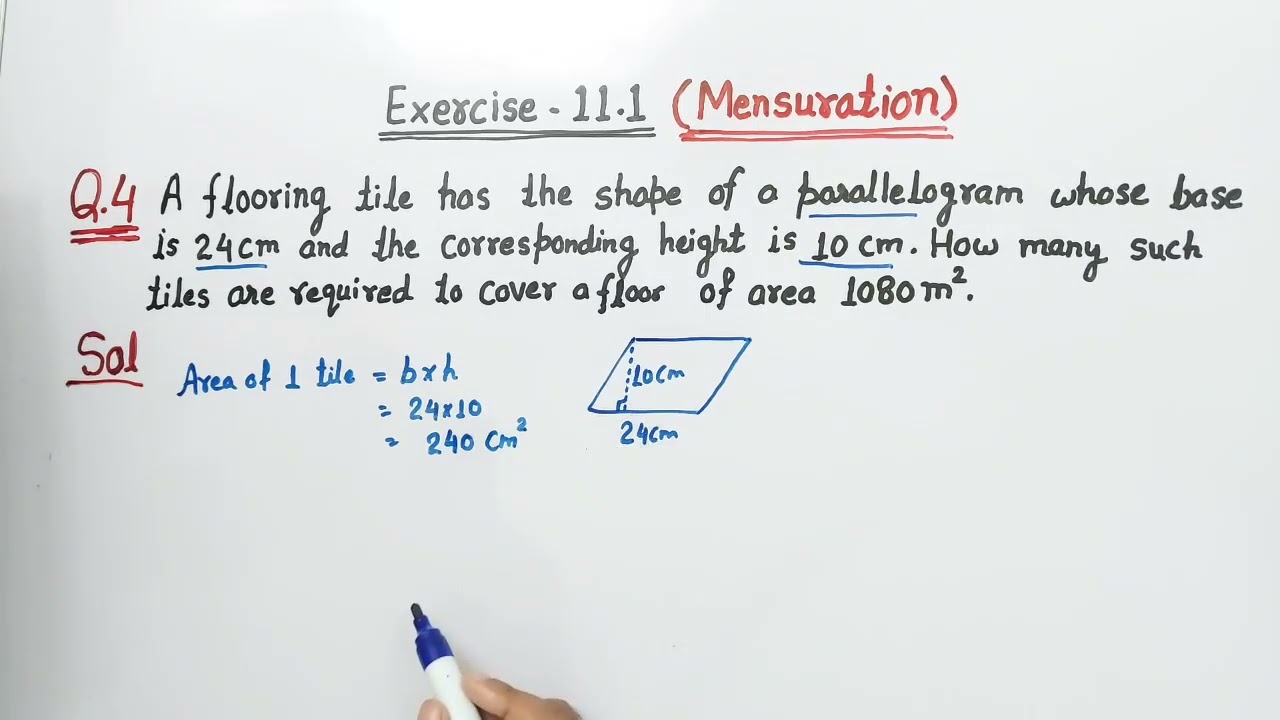 Exercise - 11.1 (Mensuration)
Q.4 A flooring tile has the shape of a parallelogram whose base
is 24cm and the corresponding height is 10 cm. How many such
tiles are required to cover a floor of area 1080 m².
Sol
Area of 1 tile = b×h
= 24×10
= 240 cm²
10cm
24cm